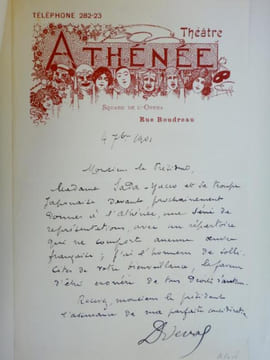 TÉLÉPHONE 282-23
Théâtre
ATHÉNÉE
SQUARE DE L'OPERA
Rue Boudreau
4 7bre 1901
Monsieur le Président,
Madame Sada-Yacco et sa troupe
Japonaise devant prochainement
donner à l'Athénée, une série de
représentations, avec un répertoire
qui ne comporte aucune œuvre
française ; j'ai l'honneur de solli-
citer de votre bienveillance, la faveur
d'être exonéré de tous droits d'auteur.
Recevez, monsieur le président
l'assurance de ma parfaite considération